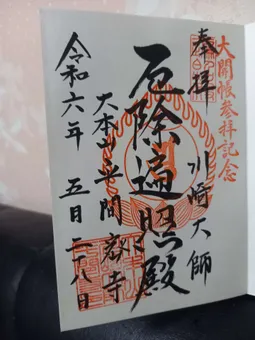 大開帳参拝記念
奉拝 川崎大師
厄除遍照殿
大本山平間寺
令和六年 五月二十八日